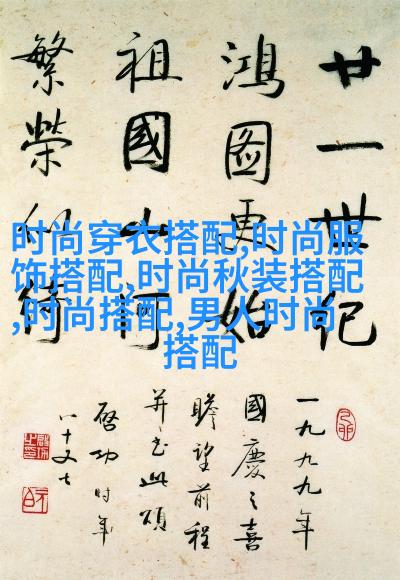 时尚穿衣搭配,时尚服
饰搭配,时尚秋装搭配
,时尚搭配,男人时尚
搭配
廿一世紀
鴻圖更始
祖國山河
繁榮似
一九九九年
國慶之喜
瞻望前程
并書此頌
啓功時年
八十又七